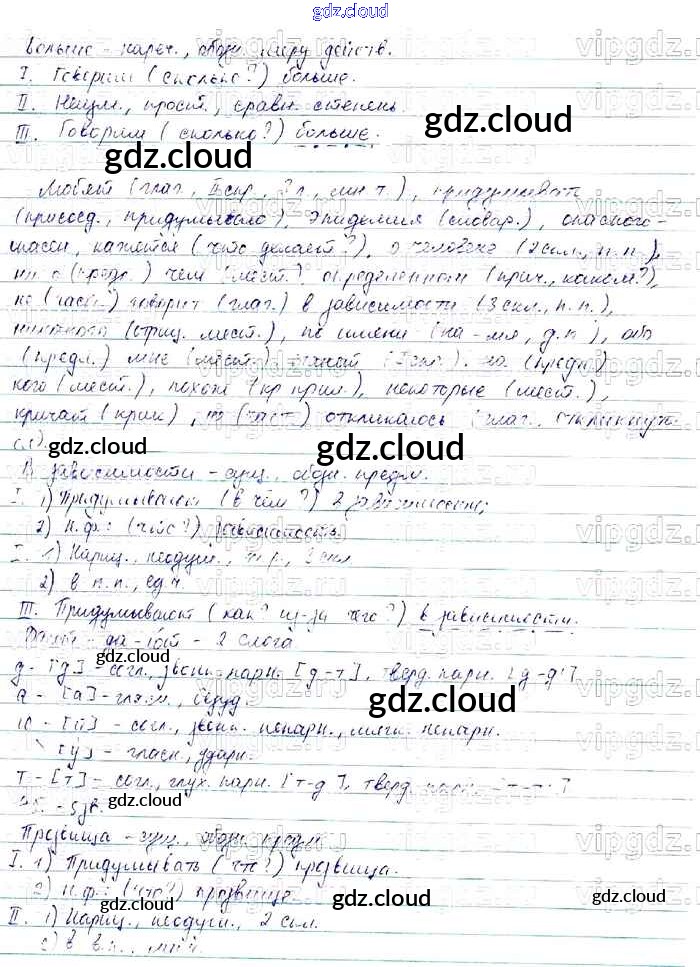 gdz.cloud
Больше - нареч., обозн. меру действ.
I. Говорим (сколько?) больше.
II. Неизм., прост., сравн. степень.
III. Говорим (сколько?) больше.
Любят (глаг., II спр., 3 л., мн.ч.), придумывать
(присоед., придумывало), эпидемия (словар.), опасного-
кажется (что делает?), о человеке (2 скл., п.п.),
ни о (предл.) чем (мест.) определенном (прич., каком?),
не (част.) говорит (глаг.) в зависимости (3 скл., п.п.),
(отриц. мест.), по имени (на -мя, д.п.),
(предл.) мне (мест.) на (предл.)
кого (мест.), похож (кр. прил.), некоторые (мест.),
кричат (крик), не (част.) откликалось (глаг., откликнуть-
ся).
В зависимости - сущ., обозн. предм.
I. 1) Придумывают (в чём?) в зависимости;
2) н.ф.: (что?) зависимость.
I. 1) Нариц., неодуш., ж.р., 3 скл.
2) в п.п., ед.ч.
III. Придумывают (как? из-за чего?) в зависимости.
Дают - да-ют - 2 слога
д - [д] - согл., звонк. парн. [д-т], тверд. парн. [д-д']
а - [а] - гласн., безуд.
ю - [й'] - согл., звонк. непарн., мягк. непарн.
[у] - гласн., ударн.
т - [т] - согл., глух. парн. [т-д], тверд. парн. [т-т']
4б. - 5зв.
Прозвища - сущ., обозн. предм.
I. 1) Придумывать (что?) прозвища.
2) н.ф.: (что?) прозвище
II. 1) Нариц., неодуш., 2 скл.
2) в в.п., мн.ч.
gdz.cloud
vipgdz.ru